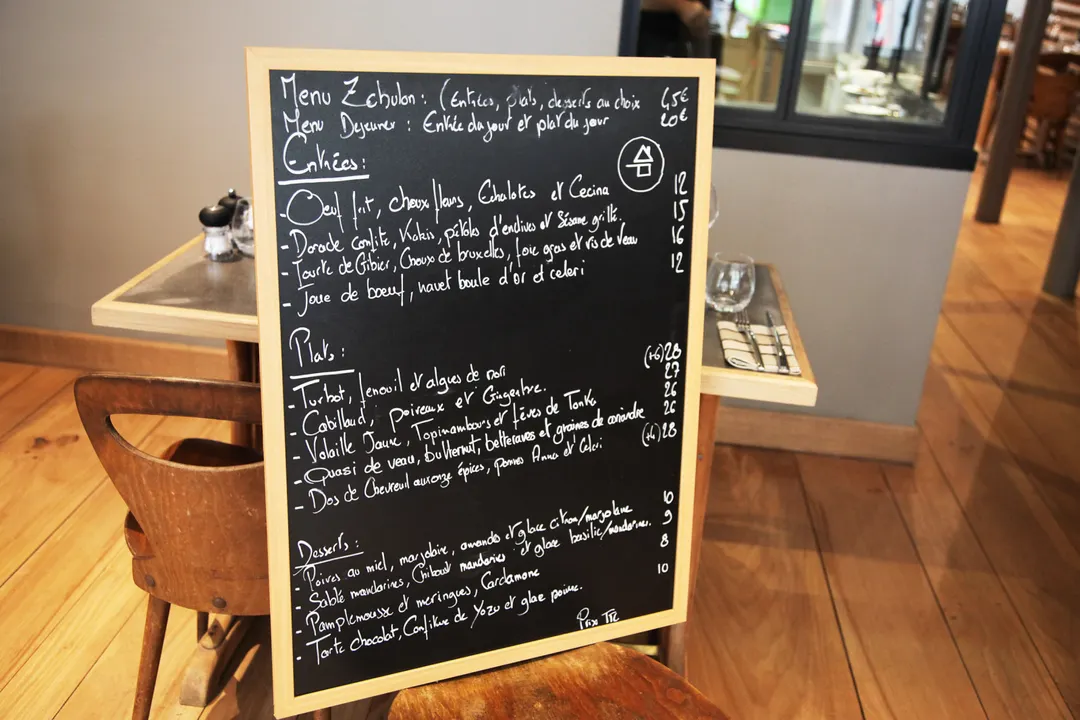 Menu Zebulon : (Entrées, plats, desserts au choix 45€
Menu Dejeuner : Entrée du jour et plat du jour 20€
Entrées :
- Oeuf frit, choux fleurs, Echalotes et Cecina 12
- Dorade confite, Kakis, pétales d'endives et Sésame grillé. 15
- Tourte de Gibier, Choux de bruxelles, foie gras et ris de Veau 16
- Joue de boeuf, navet boule d'or et celeri 12
Plats :
- Turbot, fenouil et algues de nori (+6) 28
- Cabillaud, poireaux et Gingembre. 27
- Volaille Jaune, Topinambours et fèves de Tonka 26
- Quasi de veau, butternut, betteraves et graines de coriandre 26
- Dos de Chevreuil aux onze épices, pommes Anna et Celeri (+4) 28
Desserts :
- Poires au miel, marjolaine, amandes et glace citron/marjolaine 10
- Sablé mandarines, Chiboust mandarines et glace basilic/mandarines. 9
- Pamplemousse et meringues, Cardamome 8
- Tarte chocolat, Confiture de Yozu et glace poivre. 10
Prix TTC